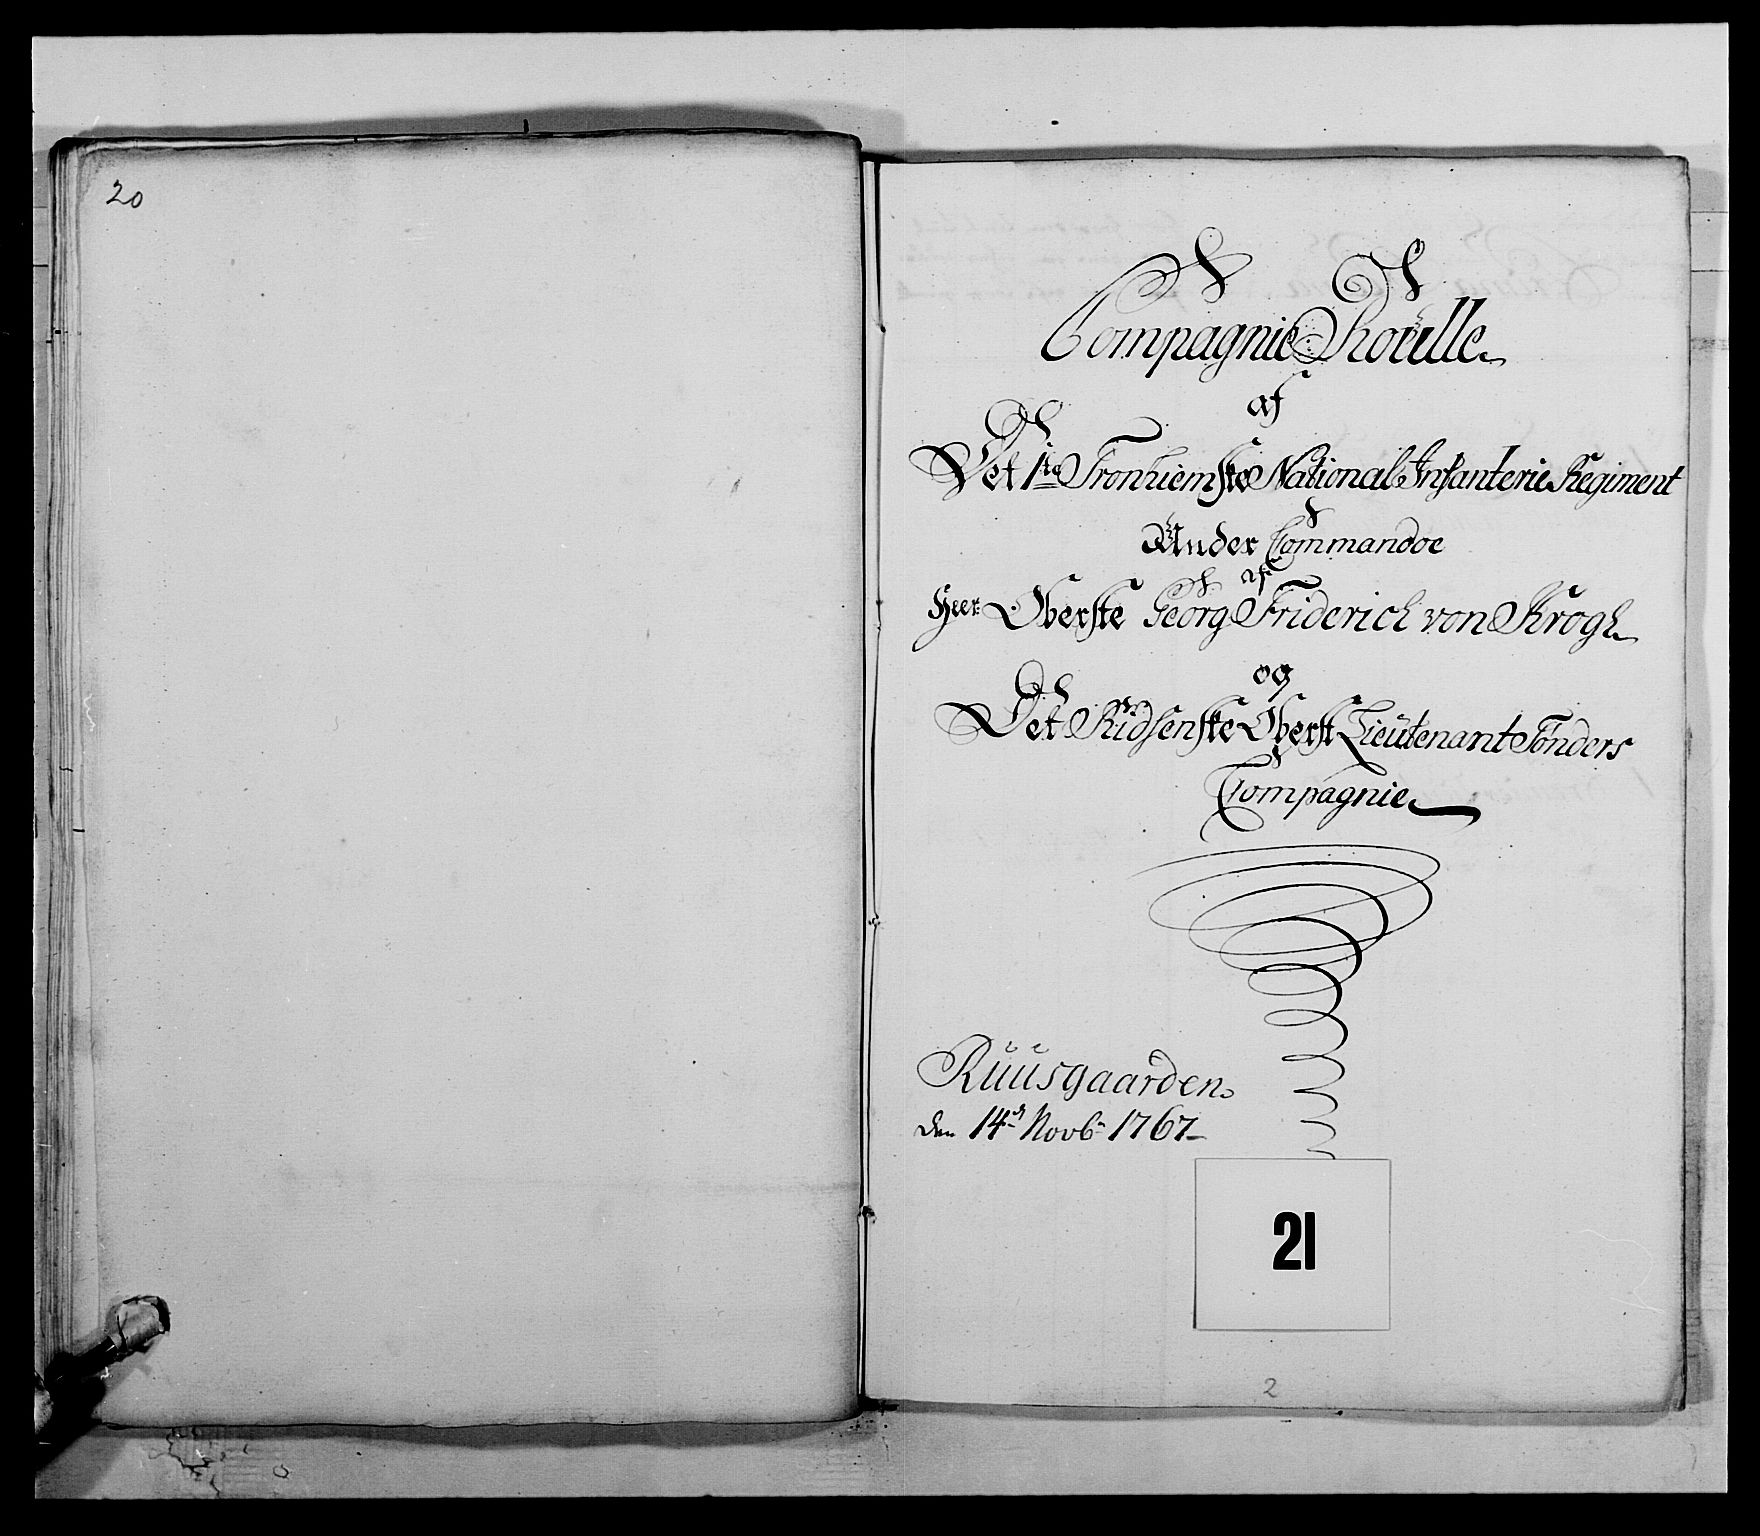 20
Compagnie Roulle
af
Det 1te Tronhiemske National Infanterie Regiment
Under Commandoe
af
Herr Oberste Georg Friderich von Krogh
og
Det Riidsenske Oberst Lieutenant Tønders
Compagnie
Ruusgaarden
den 14d Novb 1767
21
2